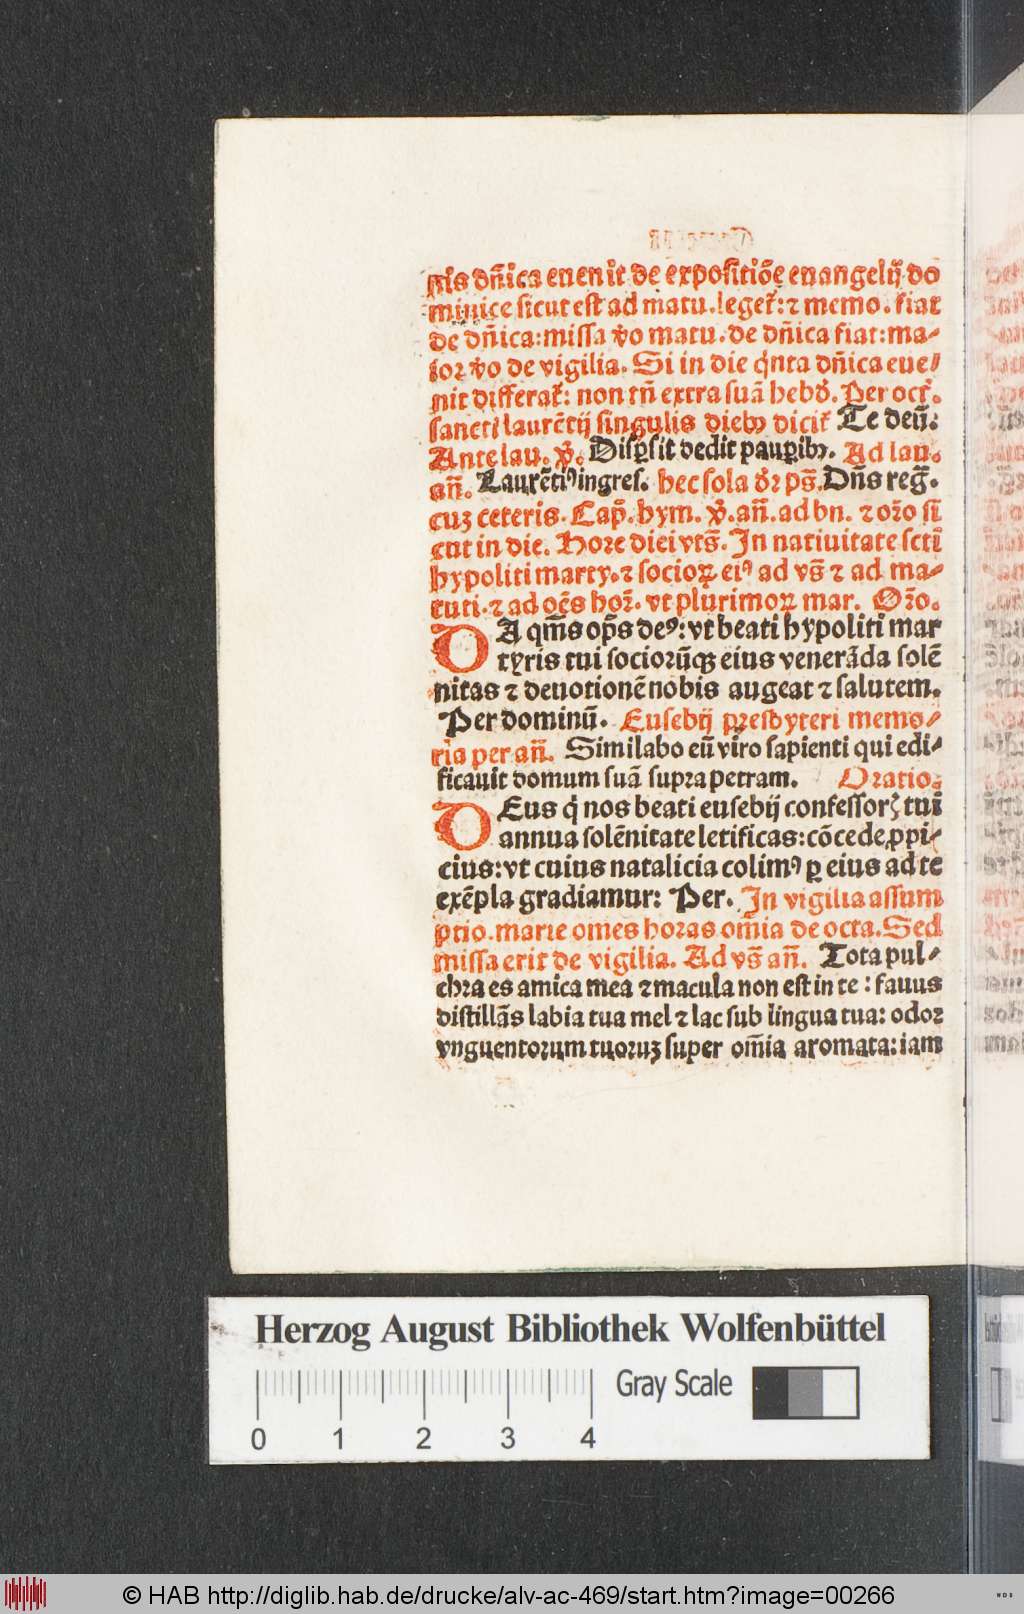 nis dñica euenit de expositiõe euangelij do
minice sicut est ad matu. leget᷑: ⁊ memo. fiat
de dñica: missa ṽo matu. de dñica fiat: ma⸗
ior ṽo de vigilia. Si in die q̇nta dñica eue⸗
nit differat᷑: non tñ extra suã hebd̾. Per oct᷑.
sancti laurẽtij singulis dieb⁊ dicit᷑ Te deũ:
Ante lau. ℣. Disꝑsit dedit pauꝑib⁊. Ad lau.
añ. Laurẽtiꝰ ingres. hec sola d̾r ps̃. Dñs reg̃.
cuz ceteris. Cap̃. hym. ℣. añ. ad bn. ⁊ or̃o si
cut in die. Hore diei vts̃. In natiuitate sctĩ
hypoliti marty. ⁊ socioꝝ eiꝰ ad vs̃ ⁊ ad ma⸗
tuti. ⁊ ad oẽs hor̃. vt plurimoꝝ mar. Or̃o.
DA qm̃s op̃s deꝰ: vt beati hypoliti mar
tyris tui sociorũqꝫ eius venerãda solẽ
nitas ⁊ deuotionẽ nobis augeat ⁊ salutem.
Per dominũ. Eusebij presbyteri memo⸗
ria per añ. Similabo eũ viro sapienti qui edi⸗
ficauit domum suã supra petram. Oratio.
DEus q̇ nos beati eusebij confessorꝭ tui
annua solẽnitate letificas: cõcede ꝓpi⸗
cius: vt cuius natalicia colimꝰ ꝑ eius ad te
exẽpla gradiamur: Per. In vigilia assum
ptio. marie omẽs horas om̃ia de octa. Sed
missa erit de vigilia. Ad vs̃ añ. Tota pul⸗
chra es amica mea ⁊ macula non est in te: fauus
distillãs labia tua mel ⁊ lac sub lingua tua: odor
vnguentorum tuoruz super om̃ia aromata: iam
Herzog August Bibliothek Wolfenbüttel
Gray Scale
0 1 2 3 4
© HAB http://diglib.hab.de/drucke/alv-ac-469/start.htm?image=00266